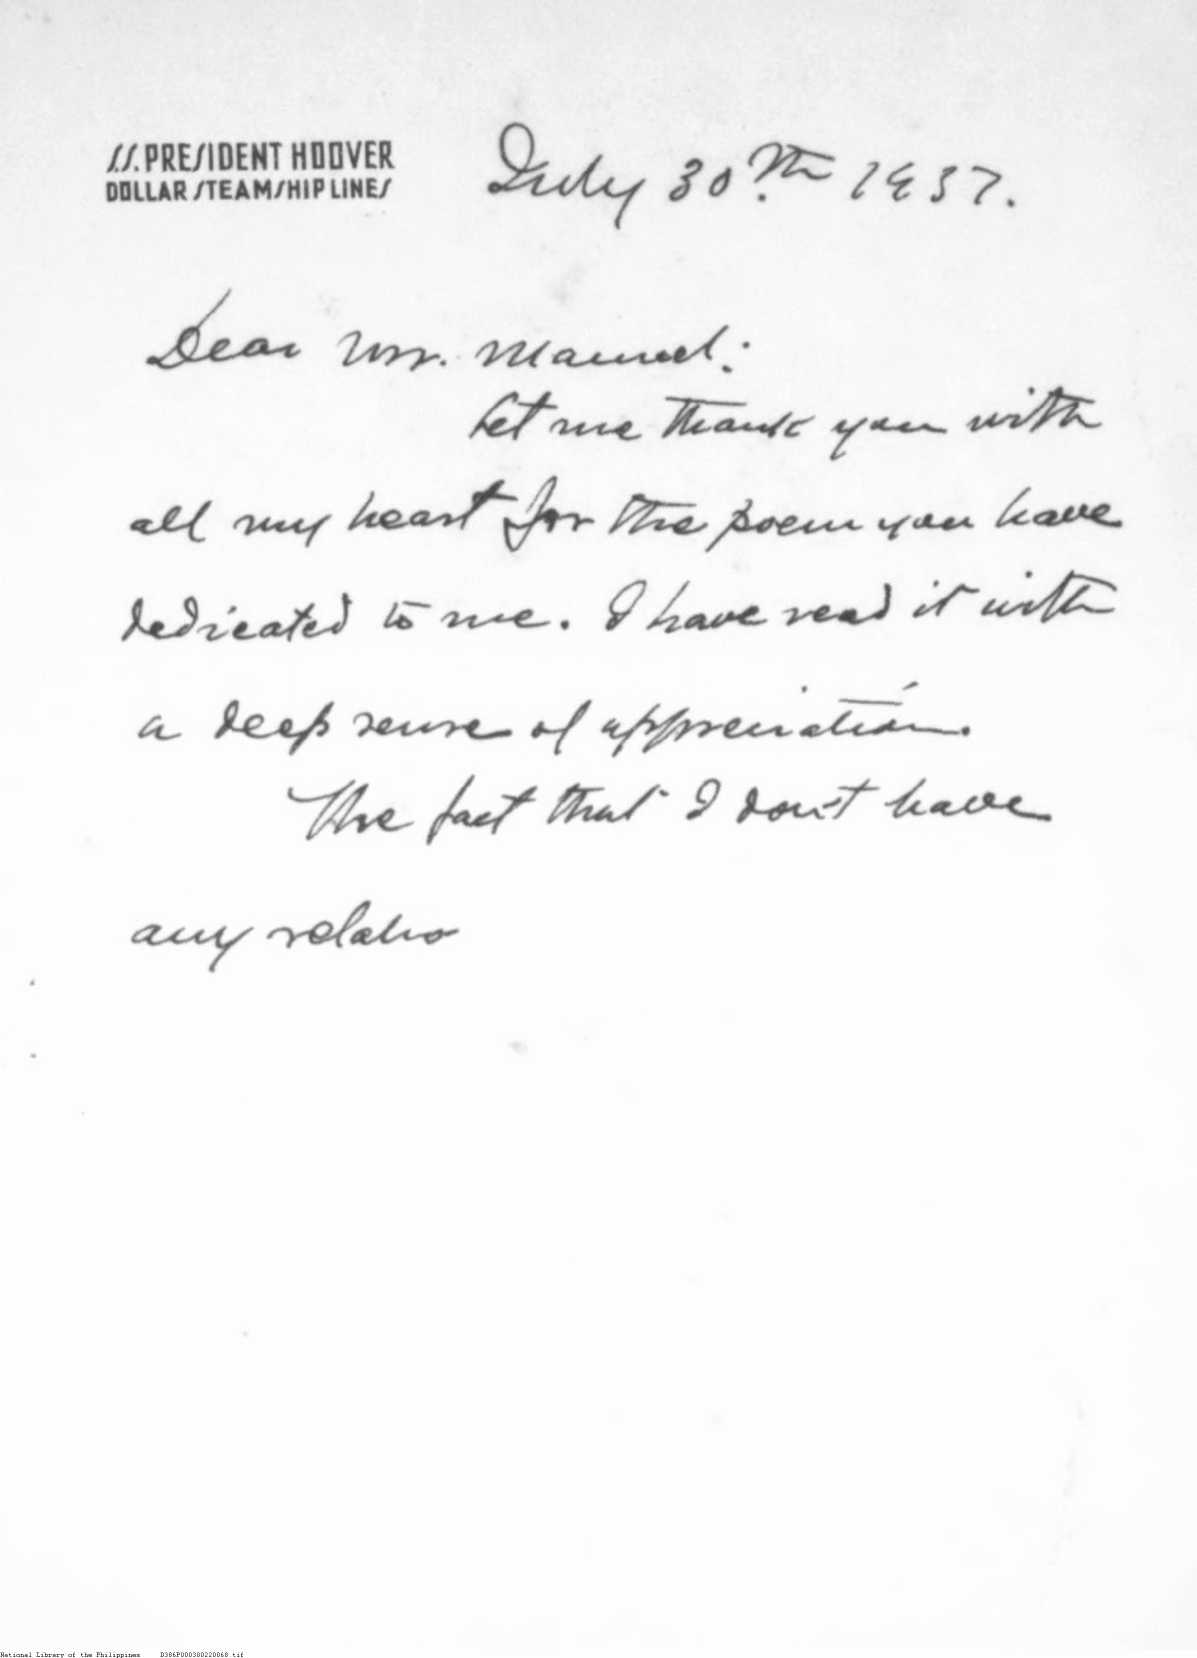 S.S. PRESIDENT HOOVER
DOLLAR STEAMSHIP LINES
July 30th. 1937.
Dear Mr. Manuel:
Let me thank you with
all my heart for the poem you have
dedicated to me. I have read it with
a deep sense of appreciation.
The fact that I don't have
any relatio
National Library of the Philippines D386P000380220068.tif